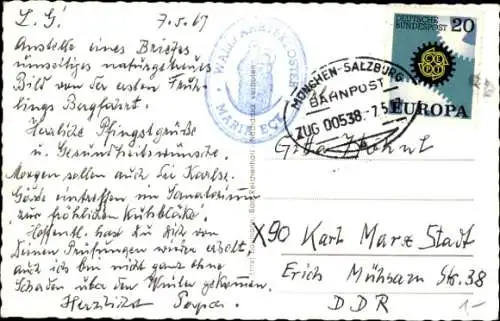 L. G! 7.5.67
Anstelle eines Briefes
unseitiges naturgetreues
Bild von der ersten Früh-
lings Bergfahrt.
Herzliche Pfingstgrüße
u. Gesundheitswünsche.
Morgen sollen auch
Gäste eintreffen im Sanatorium
zur fröhlichen
Hoffentl. hast Du Dich von
Deinen Prüfungen wieder erholt,
auch ich bin nicht ganz ohne
Schaden über den Winter gekommen.
Herzlichst Papa.
WALLFAHRTSKLOSTER
MARIA ECK
MÜNCHEN-SALZBURG
BAHNPOST
ZUG 00538 -7.5.
DEUTSCHE
BUNDESPOST
20
EUROPA
Gitta
X90 Karl Marx Stadt
Erich Mühsam Str. 38
DDR
1-